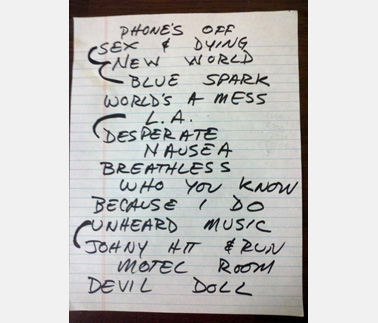 PHONE'S OFF
SEX & DYING
NEW WORLD
BLUE SPARK
WORLD'S A MESS
L.A.
DESPERATE
NAUSEA
BREATHLESS
WHO YOU KNOW
BECAUSE I DO
UNHEARD MUSIC
JOHNY HIT & RUN
MOTEL ROOM
DEVIL DOLL